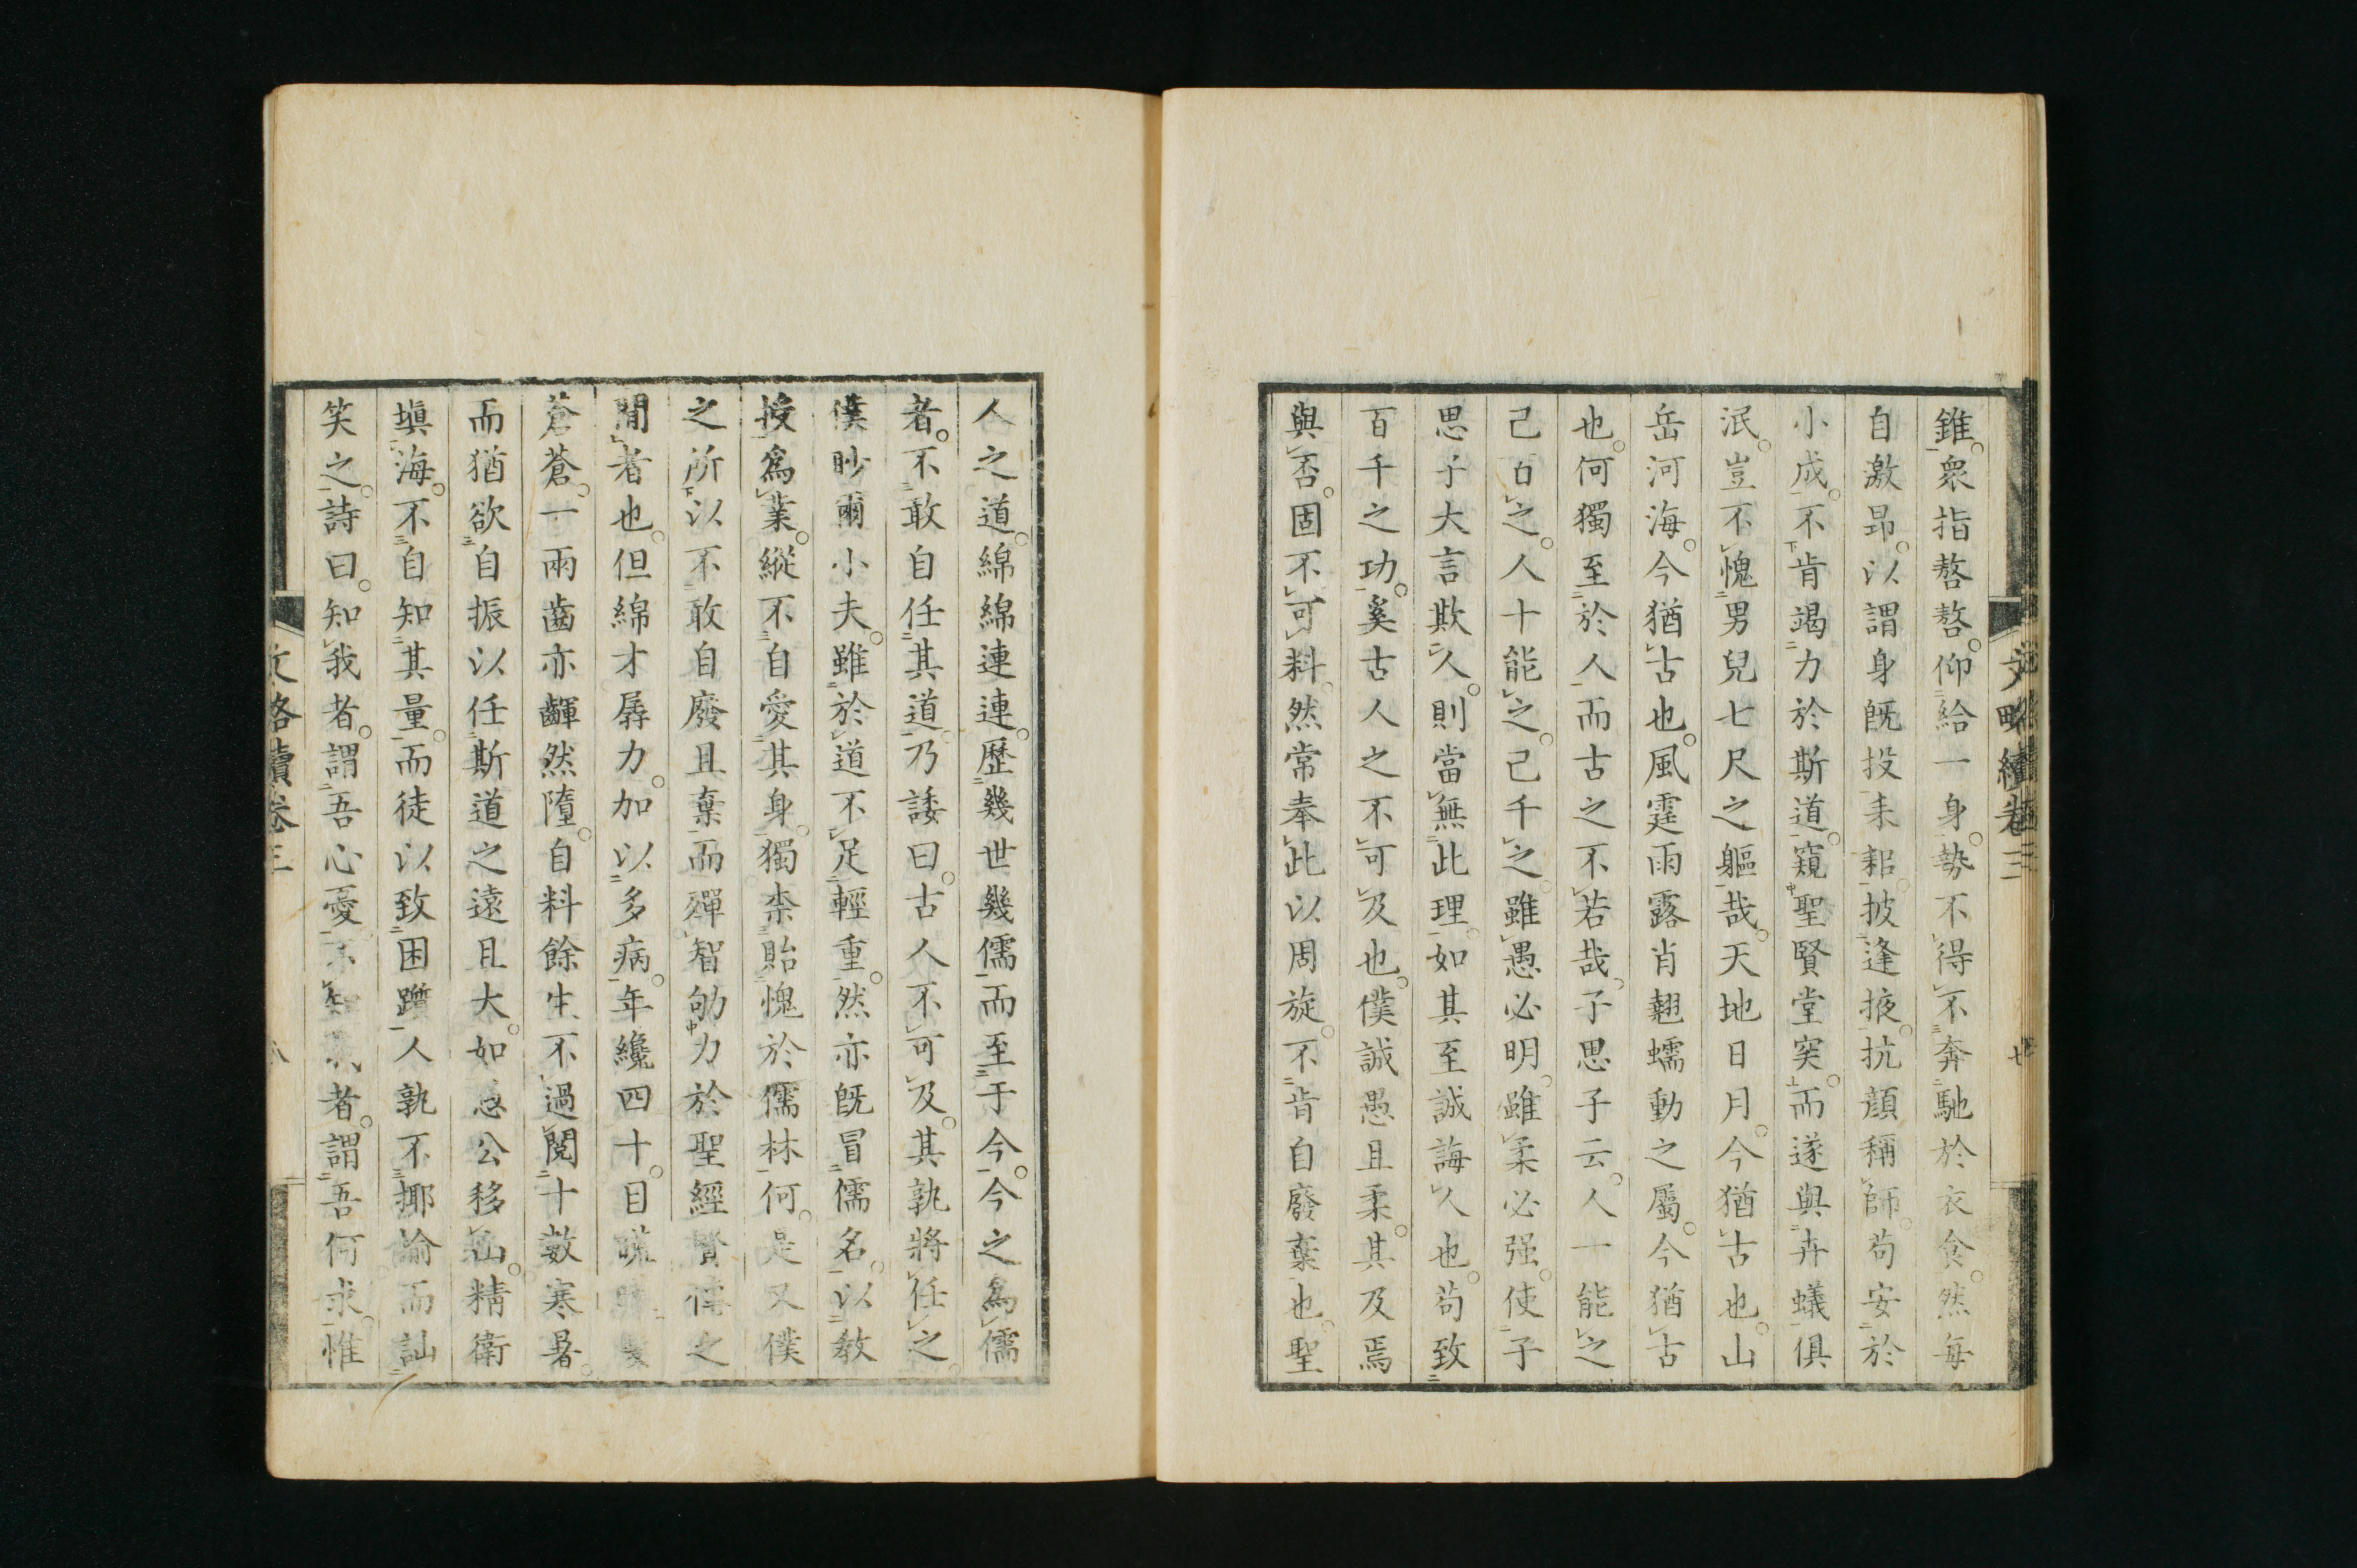 文略續卷三
七
錐。衆指嗸嗸。仰給一身。勢不得不奔馳於衣食。然每
自激昂。以謂身既投耒耜。披逢掖。抗顔稱師。苟安於
小成。不肯竭力於斯道。窺聖賢堂穾。而遂與卉蟻俱
泯。豈不愧男兒七尺之軀哉。天地日月。今猶古也。山
岳河海。今猶古也。風霆雨露肖翹蠕動之屬。今猶古
也。何獨至於人而古之不若哉。子思子云。人一能之
己百之。人十能之。己千之。雖愚必明。雖柔必强。使子
思子大言欺人。則當無此理。如其至誠誨人也。苟致
百千之功。奚古人之不可及也。僕誠愚且柔。其及焉
與否。固不可料。然常奉此以周旋。不肯自廢棄也。聖
人之道。綿綿連連。歷幾世幾儒而至于今。今之爲儒
者。不敢自任其道。乃諉曰。古人不可及。其孰將任之。
僕眇爾小夫。雖於道不足輕重。然亦既冒儒名。以敎
授爲業。縱不自愛其身。獨柰貽愧於儒林何。是又僕
之所以不敢自廢且棄而殫智劬力於聖經賢傳之
間者也。但綿才孱力。加以多病。年纔四十。目
蒼蒼。一兩齒亦齳然隋。自料餘生不過閱十數寒暑。
而猶欲自振以任斯道之遠且大。如愚公移山。精衛
塡海。不自知其量。而徒以致困躓。人孰不揶揄而訕
笑之。詩曰。知我者。謂吾心憂。不知我者。謂吾何求。惟
文略續卷三
八